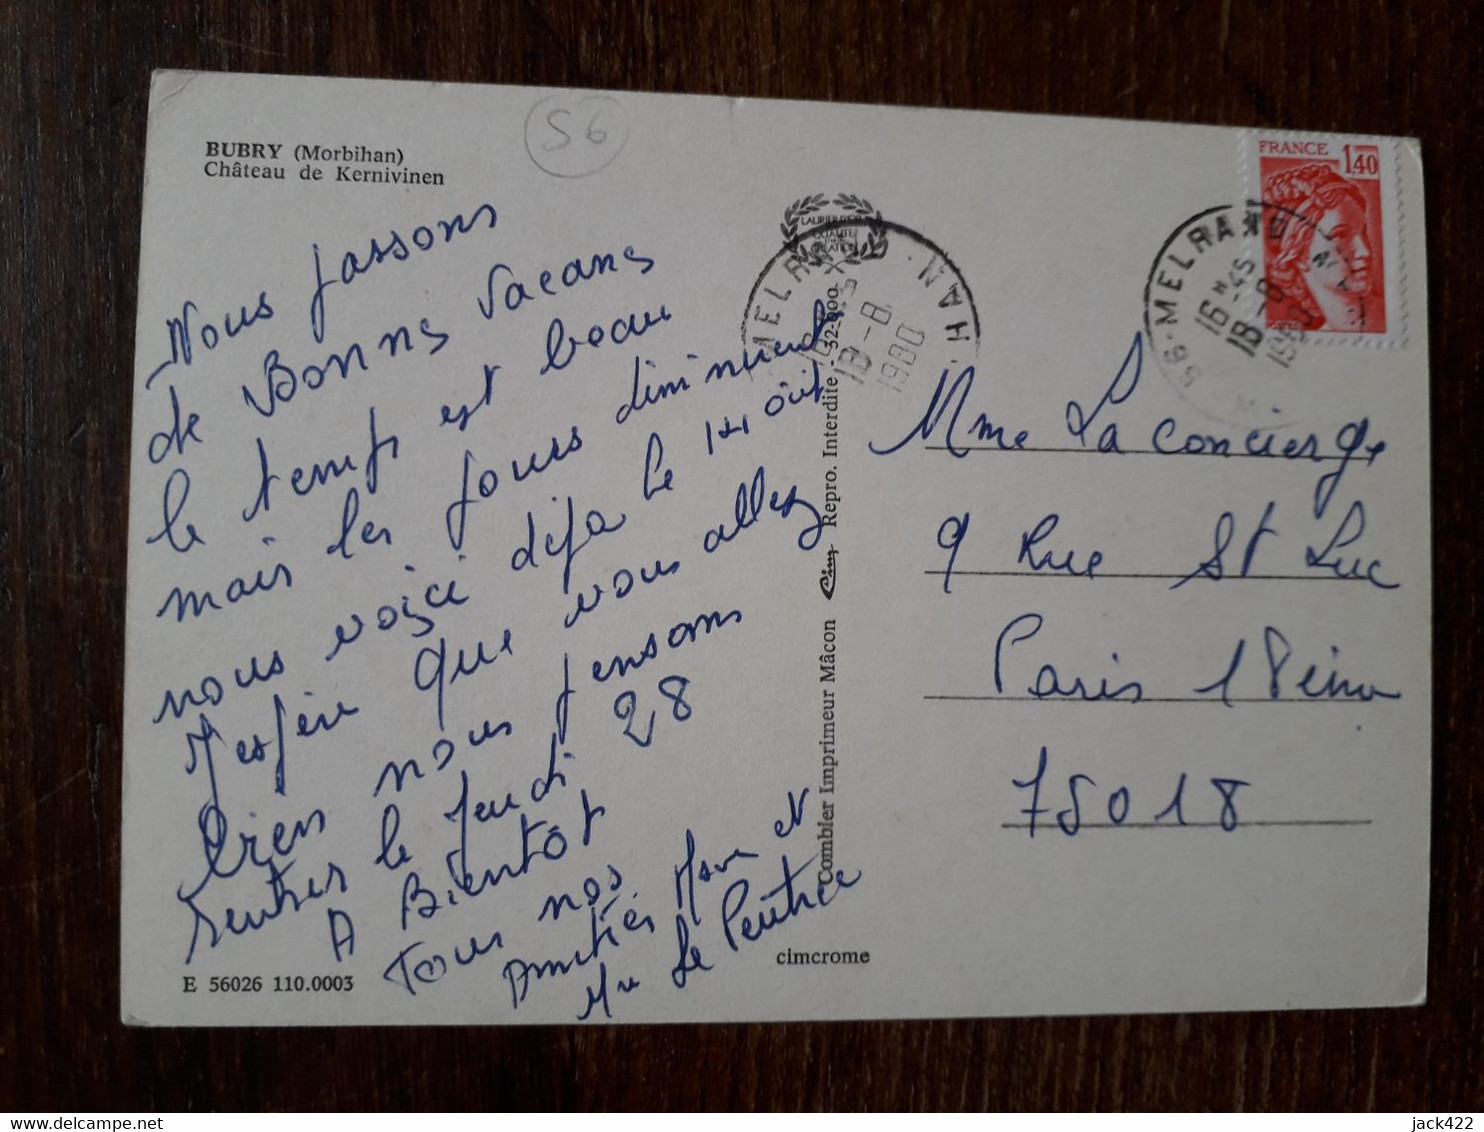 BUBRY (Morbihan)
Château de Kernivinen
56
Nous passons
de Bonnes Vacans
le temps est beau
mais les jours diminuent
nous voiçi deja le 14 oût
J'espère que vous allez
bien nous pensons
rentrer le Jeudi 28
A Bientôt
Tous nos
Amitiés Mme et
Mr Le Peutrec
E 56026 110.0003
cimcrome
Combier Imprimeur Mâcon Cim Repro. Interdite 32-000
LAURIER D'OR
QUALITÉ
CRÉATION
MELRAND
18-8
1980
FRANCE 1,40
56 · MELRAND
16H45
18-8
1980
Mme La concierge
9 Rue St Luc
Paris 18eime
75018
jack422